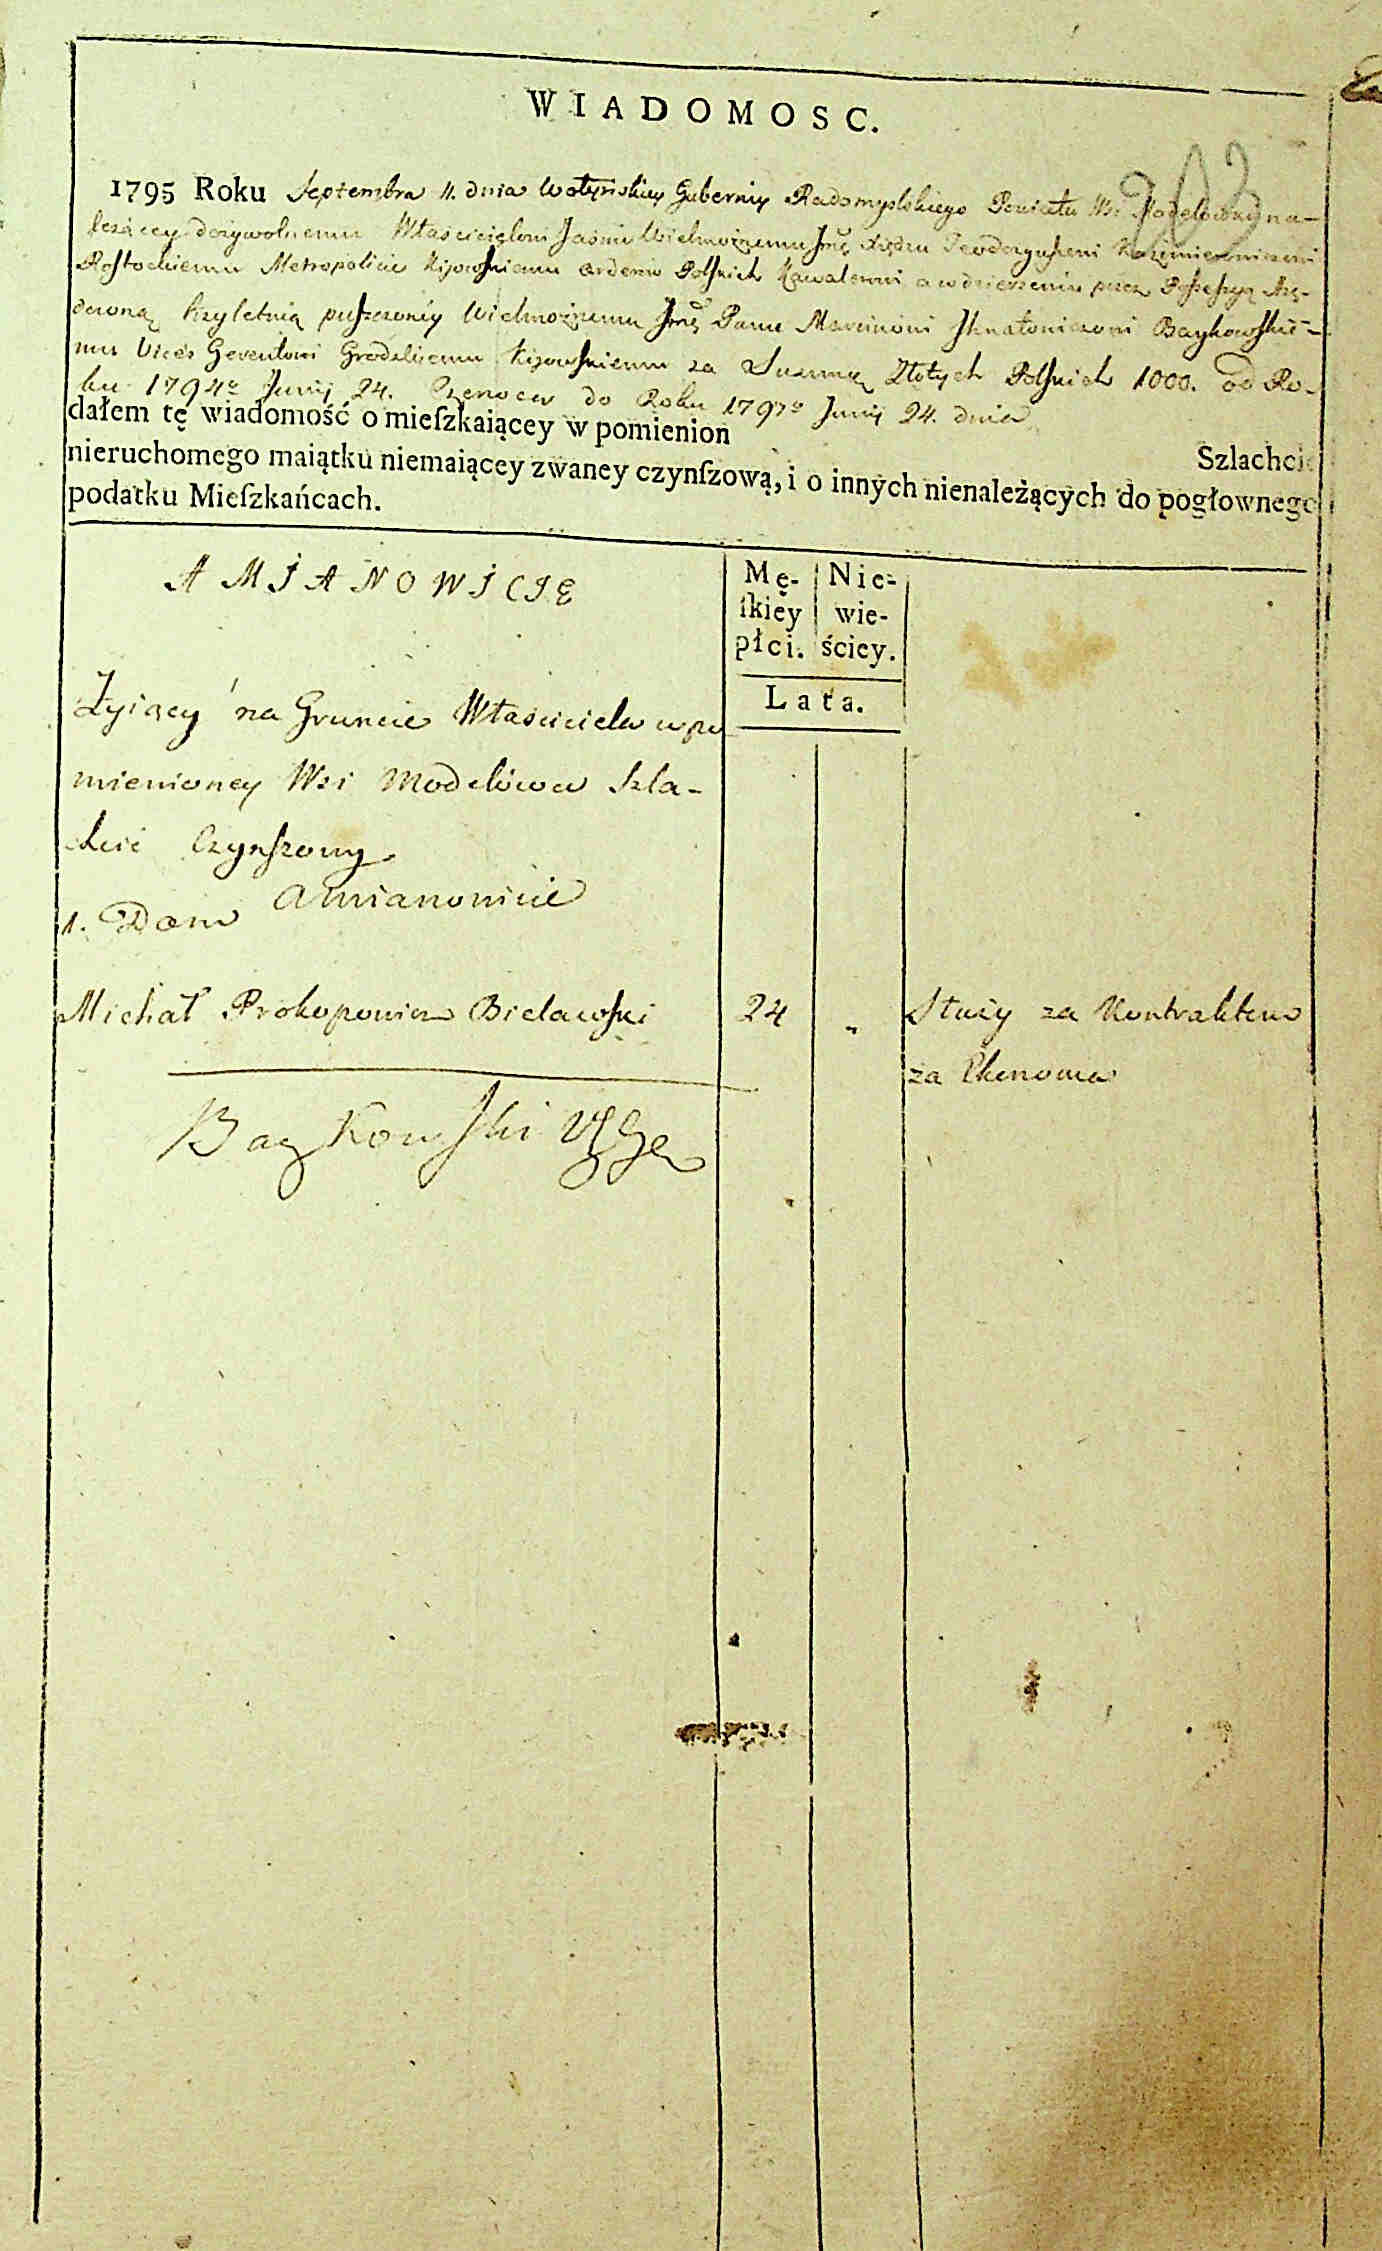 WIADOMOSC.
203
1795 Roku Septembra 11. dnia Wołyńskiey Gubernij Radomyslskiego Powiatu Wsi Modelowki na-
leżącey dożywotniemu Właścicielowi Jaśnie Wielmożnemu Jmć Xiędzu Teodozyuszowi Kazimierowiczowi
Rostockiemu Metropolicie Kijowskiemu Orderow Polskich Kawalerowi a w dzierżeniu przez Possessyą Arę-
downą trzyletnią puszczoney Wielmożnemu Jmć Panu Marcinowi Jhnatowiczowi Baykowskie-
mu Vices Gerentowi Grodzkiemu Kijowskiemu za Summę Złotych Polskich 1000. od Ro-
ku 1794o Junij 24. Czerwca do Roku 1797o Junij 24. dnia
dałem tę wiadomość o mieſzkaiącey w pomienion
Szlachcie
nieruchomego maiątku niemaiącey zwaney czynſzową, i o innych nienależących do pogłownego
podatku Mieſzkańcach.
AMIANOWICIE
Mę-
ſkiey
płci.
Nie-
wie-
ściey.
Lata.
Żyiący na Gruncie Właściciela w po
mienioney Wsi Modelówce Szla-
chcic Czynszowy
Amianowicie
1. Dom
Michał Prokopowicz Bielawski 24 „ Służy za Kontraktem
za Ekonoma
Baykowski VſGe